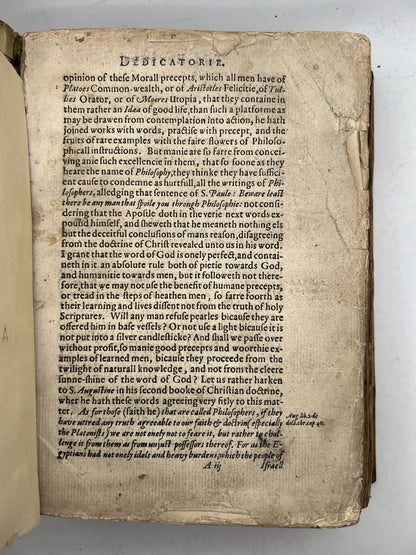 DEDICATORIE.
opinion of these Morall precepts, which all men have of
Platoes Common-wealth, or of Aristotles Felicitie, of Tul-
lies Orator, or of Moores Utopia, that they containe in
them rather an Idea of good life, than such a platforme as
may be drawen from contemplation into action, he hath
Joined works with words, practise with precept, and the
fruits of rare examples with the faire flowers of Philoso-
phicall instructions. But manie are so farre from concei-
ving anie such excellencie in them, that so soone as they
heare the name of Philosophy, they thinke they have suffici-
ent cause to condemne as hurtfull, all the writings of Phi-
losophers, alledging that sentence of S. Paule: Beware least
there be any man that spoile you through Philosophie: not consi-
dering that the Apostle doth in the verie next words ex-
pound himself, and sheweth that he meaneth nothing els
but the deceitful conclusions of mans reason, disagreeing
from the doctrine of Christ revealed unto us in his word.
I grant that the word of God is onely perfect, and contai-
neth in it an absolute rule both of pietie towards God,
and humanitie towards men, but it followeth not there-
fore, that we may not use the benefit of humane precepts,
or tread in the steps of heathen men, so farre foorth as
their learning and lives dissent not from the truth of holy
Scriptures. Will any man refuse pearles bicause they are
offered him in base vessels? Or not use a light bicause it is
not put into a silver candlesticke? And shall we passe over
without profit, so manie good precepts and woorthie ex-
amples of learned men, bicause they proceede from the
twilight of naturall knowledge, and not from the cleere
sunne-shine of the word of God? Let us rather harken
to S. Augustine in his second booke of Christian doctrine,
wher he hath these words agreeing very fitly to this mat-
ter. As for those (saith he) that are called Philosophers, if they
have uttred any truth agreeable to our faith & doctrin (especially
the Platonists) we are not onely not to feare it, but rather to chal-
lenge it from them as from unjust possessors thereof. For as the E-
gyptians had not onely idols and heavy burdens, which the people of
Aug. lib. 2. de
doct. chr. cap. 40.
A iij
Israell